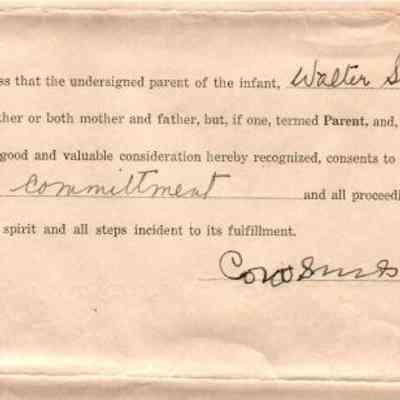 ss that the undersigned parent of the infant, Walter S
ther or both mother and father, but, if one, termed Parent, and,
good and valuable consideration hereby recognized, consents to
committment and all proceedi
spirit and all steps incident to its fulfillment.